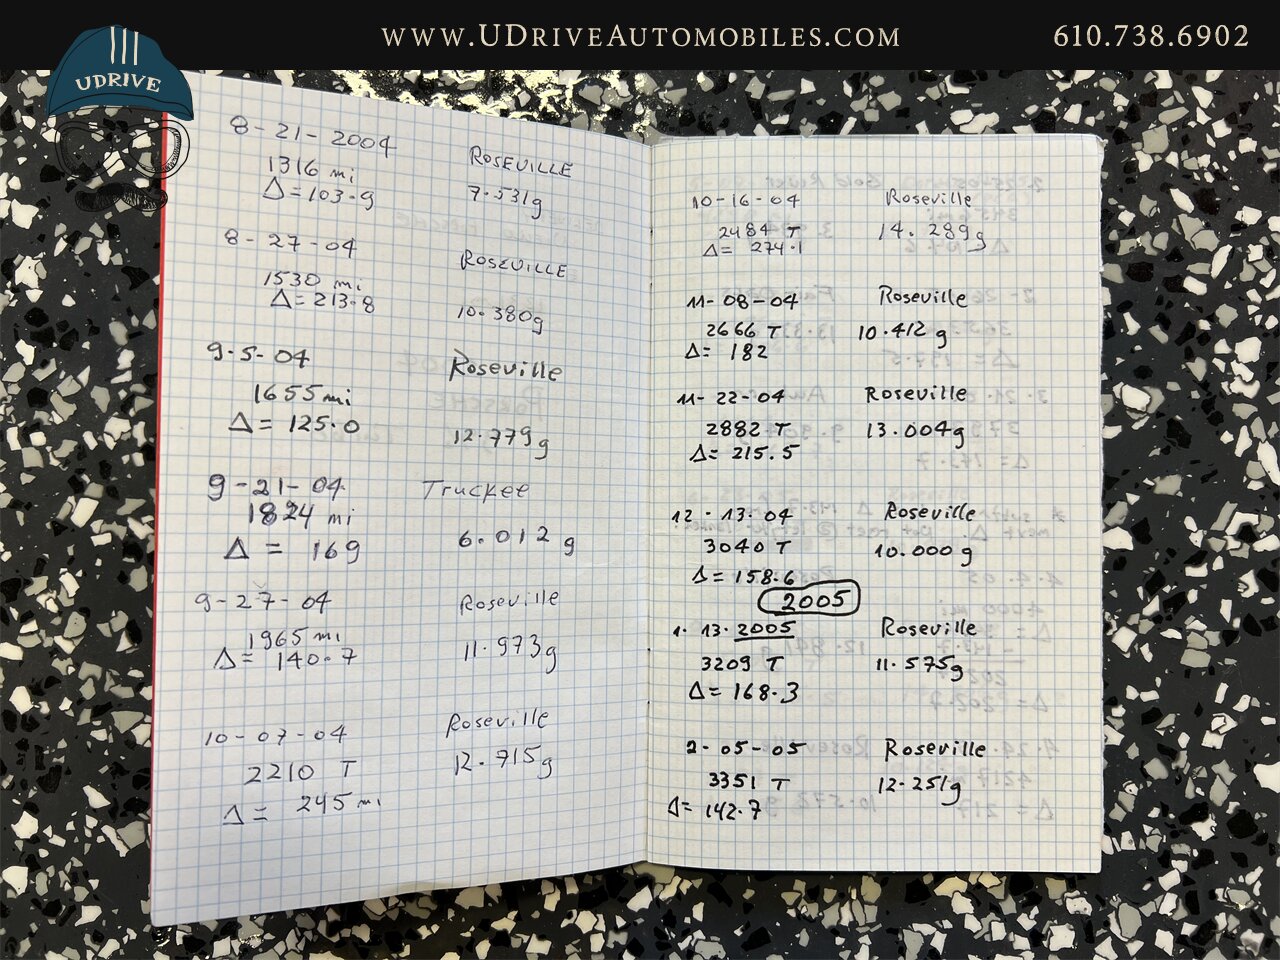 WWW.UDRIVEAUTOMOBILES.COM
610.738.6902
UDRIVE
8-21-2004 ROSEVILLE
1316 mi
Δ=103.9 7.531g
8-27-04 ROSEVILLE
1530 mi
Δ=213.8 10.380g
9.5-04 Roseville
1655 mi
Δ= 125.0 12.779g
9-21-04 Truckee
1824 mi
Δ = 169 6.012 g
9-27-04 Roseville
1965 mi
Δ= 140.7 11.973g
10-07-04 Roseville
2210 T 12.715g
Δ= 245 mi
10-16-04 Roseville
2484 T 14.289g
Δ= 274.1
11-08-04 Roseville
2666 T 10.412 g
Δ= 182
11-22-04 Roseville
2882 T 13.004g
Δ= 215.5
12.13.04 Roseville
3040 T 10.000 g
Δ=158.6
2005
1.13.2005 Roseville
3209 T 11.575g
Δ=168.3
2-05-05 Roseville
3351 T 12.251g
Δ= 142.7